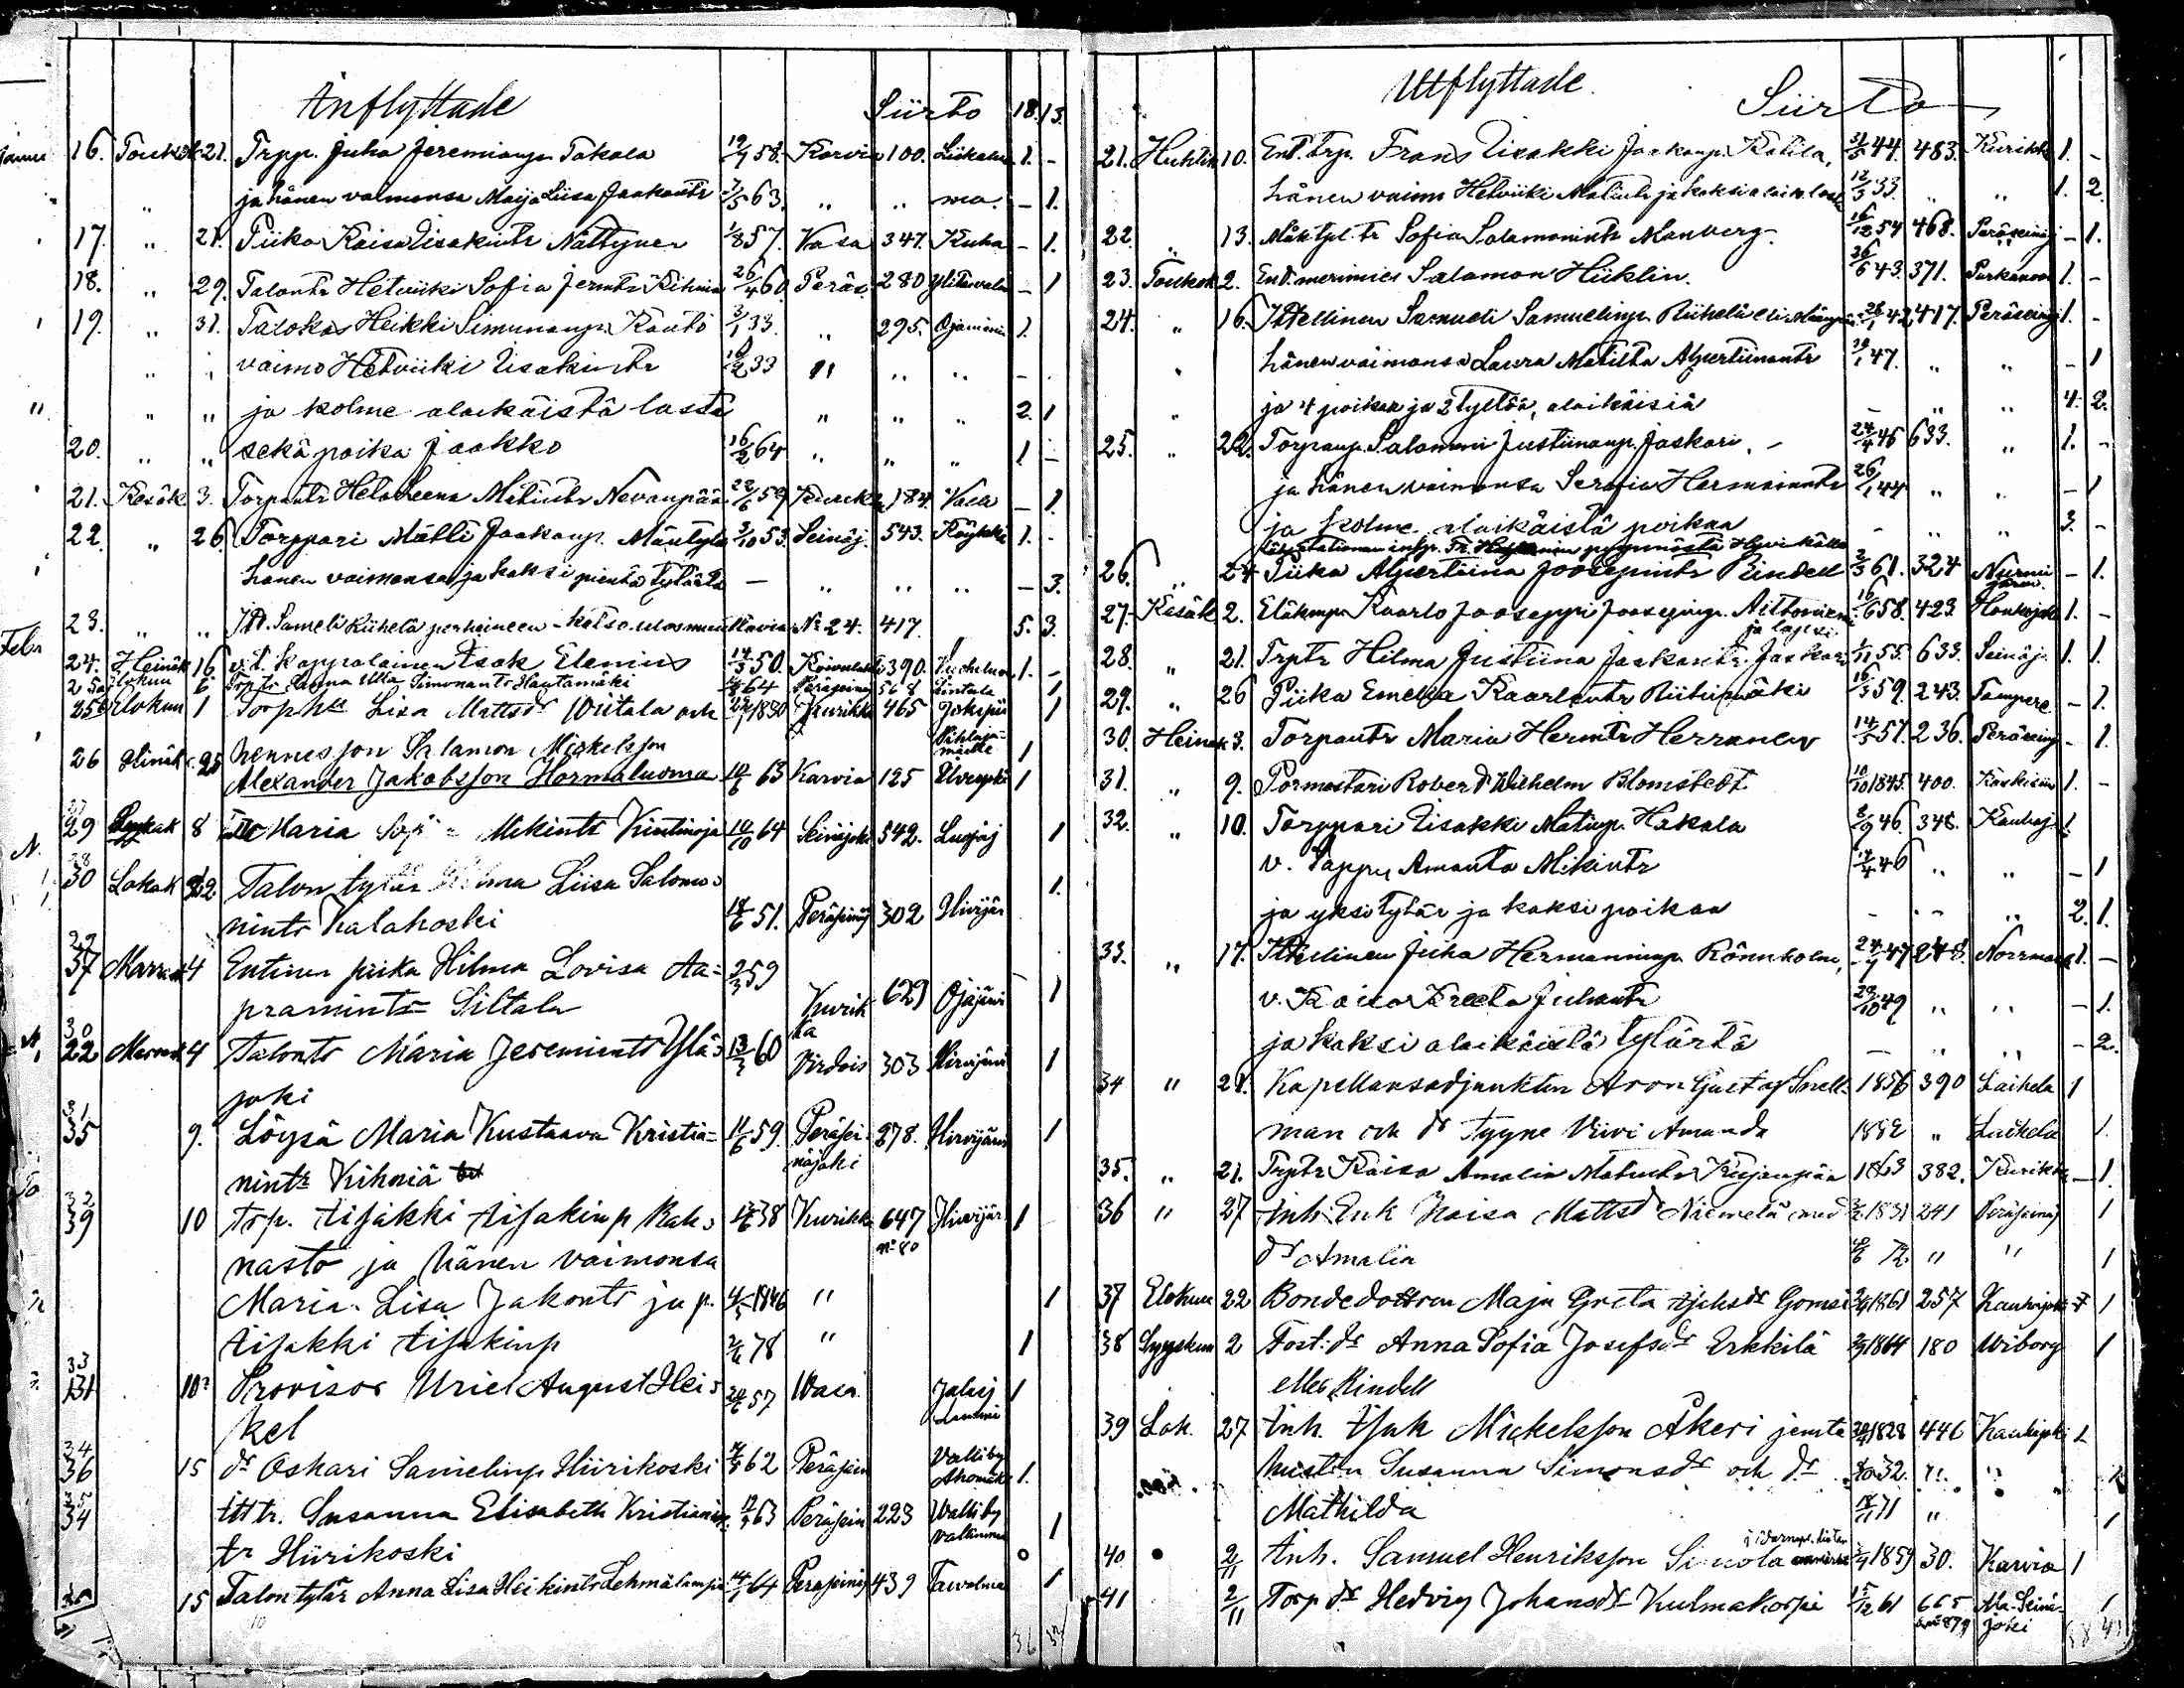 Anflyttade Siirto 18. 13.
16. Toukok 21. Trpp. Juha Jeremianp. Takala 19/7 58. Karvia 100. 1. -
" ja hänen vaimonsa Maija Liisa Jaakontr 7/5 63. " " - 1.
17. " 21. Piika Kaisa Iisakintr Nättynen 1/8 57. Vasa 347. Kuha - 1.
18. " 29. Talontr Hetviiki Sofia Jermtr Kihniä 26/4 60 Peräs. 280 - 1
19. " 31. Talokas Heikki Simunanp. Kauto 3/1 33. " 295. 1.
" " vaimo Hetviiki Iisakintr 33 " " " - .
" " ja kolme alaikäistä lasta " " " 2. 1
20. " " sekä poika Jaakko 16/2 64 " " " 1 -
21. Kesäk 3. Torpantr Helo Leena Matintr Nevanpää 22/6 59 Kurikka 184. - 1.
22. " 26. Torppari Matti Jaakonp. Mäntylä 3/10 53. Seinäj. 543. 1. -
hänen vaimonsa ja kaksi pientä tytärtä - " " " - 3.
23. " " Itt. Sameli Riihelä perheineen - katso ulosmuuttavia No 24. 417. 5. 3.
24. Heinäk 16 v.t. kappalainen Isak Elenius 14/3 50. 390. 1. -
25a Elokuu 6 Trp tr Sanna Ulla Simonantr Hautamäki 64 Peräseinä 568 Lintala
25b Elokuu 1 Torp hu Lisa Mattsdr Wiitala och 1830 Kurikka 465 Jokipii 1
26 Heinäk. 25 hennes son Salamon Mickelsson 1
Alexander Jakobsson Hormaluoma 10/6 63 Karvia 125 1
27 29 Syyskuk 8 Maria Mikintr Kintinoja 10/10 64 Seinäjoki 542. Luopaj 1
28 30 Lokak 212 Talon tytär Hilma Liisa Salomo-
nintr Kalakoski 18/6 51. Peräseinäj 302 Hirvijär 1.
29 37 Marrask 4 Entinen piika Hilma Lovisa Aa- 2/3 59
pramintr Siltala Kurikka 629 Ojajärvi 1
30 22 Marrask 4 Talontr Maria Jeremientr Ylä- 13/3 60 Virdois 303 Hirvijärvi 1
joki
31 35 9. Löysä Maria Kustaava Kristia- 11/6 59. Peräsei- 278. Hirvijärvi 1
nintr Kihniä näjoki
32 39 10 trp. Iisakki Iisakinp Kak- 38 Kurikka 647 Hirvijär 1
nasto ja hänen vaimonsa no 80
Maria Lisa Jakontr ja p. 1846 " 1
Iisakki Iisakinp 2/6 78 " 1
33 131 10. Provisor Uriel August Hei- 24/6 57 Wasa Jalasj 1
kel
34 36 15 dr Oskari Samelinp Hiirikoski 62 Peräsein Valliby 1.
35 34 Itt tr. Susanna Elisabeth Kristianin- 63 Peräsein 223 Walliby 1
tr Hiirikoski
36 15 Talontytär Anna Lisa Heikintr Lehmälampi 64 Peräseinäj 439 1
Utflyttade. Siirto
21. Huhtik 10. Ent. trp. Frans Iisakki Jaakonp. Katila, 31/5 44. 483. Kurikka 1. -
hänen vaimo Hetviiki Matintr ja kaksi alaik. lasta 12/3 33. " " 1. 2.
22. " 13. Mäktpl. tr Sofia Salamonintr Manberg. 16/12 54 468. Peräseinäj - 1.
23. Toukok 2. Ent. merimies Salamon Hiiklin. 26/6 43. 371. Parkanoon 1. -
24. " 16. Itsellinen Samueli Samuelinp. Riihelä eli Mäenpää 26/1 42 417. Peräseinäj 1. -
" hänen vaimonsa Laura Matilta Alpertiinantr 19/1 47. " " - 1
" ja 4 poikaa ja 2 tyttöä, alaikäisiä - " " 4. 2.
25. " 22. Torpanp. Salomon Justiinanp. Jaskari. 24/4 45 633. " 1. -
ja hänen vaimonsa Serafia Hermanintr 26/1 44 " " - 1
ja kolme alaikäistä poikaa - " " 3. -
26. " 24 Piika Alpertiina Joosepintr Rindell 2/3 61. 324 Nurmijärvi - 1.
27. Kesäk 2. Eläkmp. Kaarlo Jooseppi Joosepinp. Aittoniemi 16/6 58. 423. Honkajok 1. -
ja lapsi
28. " 21. Trptr Hilma Justiina Jaakontr Jaskari 1/11 55. 633. Seinäj. 1. 1.
29. " 26 Piika Emelia Kaarlontr Riihimäki 16/3 59. 243. Tampere. - 1.
30. Heinäk 3. Torpantr Maria Hermtr Herranen 14/5 57. 236. Peräseinäj - 1.
31. " 9. Pormestari Robert Wilhelm Blomstedt 10/10 1845. 400. 1. -
32. " 10. Torppari Iisakki Matinp. Hakala 8/9 46. 348. Kauhaj. 1.
v. Vappu Amanta Mikintr 14/4 46 " " - 1
ja yksi tytär ja kaksi poikaa - - " 2. 1.
33. " 17. Itsellinen Juha Hermanninp. Rönnholm, 24/7 47 248. Norrmark 1. -
v. Kaisa Kreeta Juhontr 29/10 49 " " - 1.
ja kaksi alaikäistä tytärtä - " " - 2.
34 " 21. Kapellansadjunkten Aron Gustaf Snell- 1856 390 Laihela 1
man och dr Tyyne Viivi Amanda 1882 " Laihela 1.
35. " 21. Trptr Kaisa Amalia Matintr Kujanpää 1863 382. Kurikka - 1.
36 " 27 Inh. Enk Kaisa Mattsdr Niemelä med 1831 241 Peräseinäj 1
dr Amalia 72. " " 1
37 Elokuu 22 Bondedottren Maja Greta Isaksdr Gomsi 1861 257 Kauhajoki 1
38 Syyskuu 2 Fost: dr Anna Sofia Josefsdr Erkkilä 1864 180 Wiborg 1
eller Rindell
39 Lok. 27 Inh. Isak Mickelsson Åkeri jemte 1828 446 Kauhajoki 1
hustrun Susanna Simonsdr och dr 32. " "
Mathilda 18/11 71 " 1
40 2/11 Inh. Samuel Henriksson 1859 30. Karvia 1
41 2/11 Torp dr Hedvig Johansdr Kulmakorpi 15/12 61 665 Ala-Seinä- 1
joki